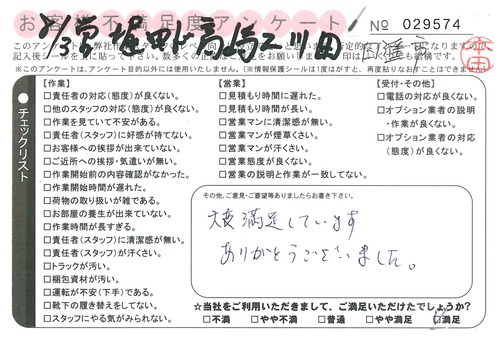 お客様不満足度アンケート
No 029574
チェックリスト
【作業】
□責任者の対応(態度)が良くない。
□他のスタッフの対応(態度)が良くない。
□作業を見ていて不安がある。
□責任者(スタッフ)に好感が持てない。
□お客様への挨拶が出来ていない。
□ご近所への挨拶・気遣いが無い。
□作業開始前の内容確認がなかった。
□作業開始時間が遅れた。
□荷物の取り扱いが雑である。
□お部屋の養生が出来ていない。
□作業時間が長すぎる。
□責任者(スタッフ)に清潔感が無い。
□責任者(スタッフ)が汗くさい。
□トラックが汚い。
□梱包資材が汚い。
□運転が不安(下手)である。
□靴下の履き替えをしてない。
□スタッフにやる気がみられない。
【営業】
□見積もり時間に遅れた。
□見積もり時間が長い。
□営業マンに清潔感が無い。
□営業マンが煙草くさい。
□営業マンが汗くさい。
□営業態度が良くない。
□営業の説明と作業が一致してない。
【受付・その他】
□電話の対応が良くない。
□オプション業者の説明
・作業が良くない。
□オプション業者の対応
(態度)が良くない。
その他、ご意見・ご要望等ありましたらお書き下さい。
大変満足しています
ありがとうございました。
☆当社をご利用いただきまして、ご満足いただけたでしょうか?
□不満 □やや不満 □普通 □やや満足 □満足